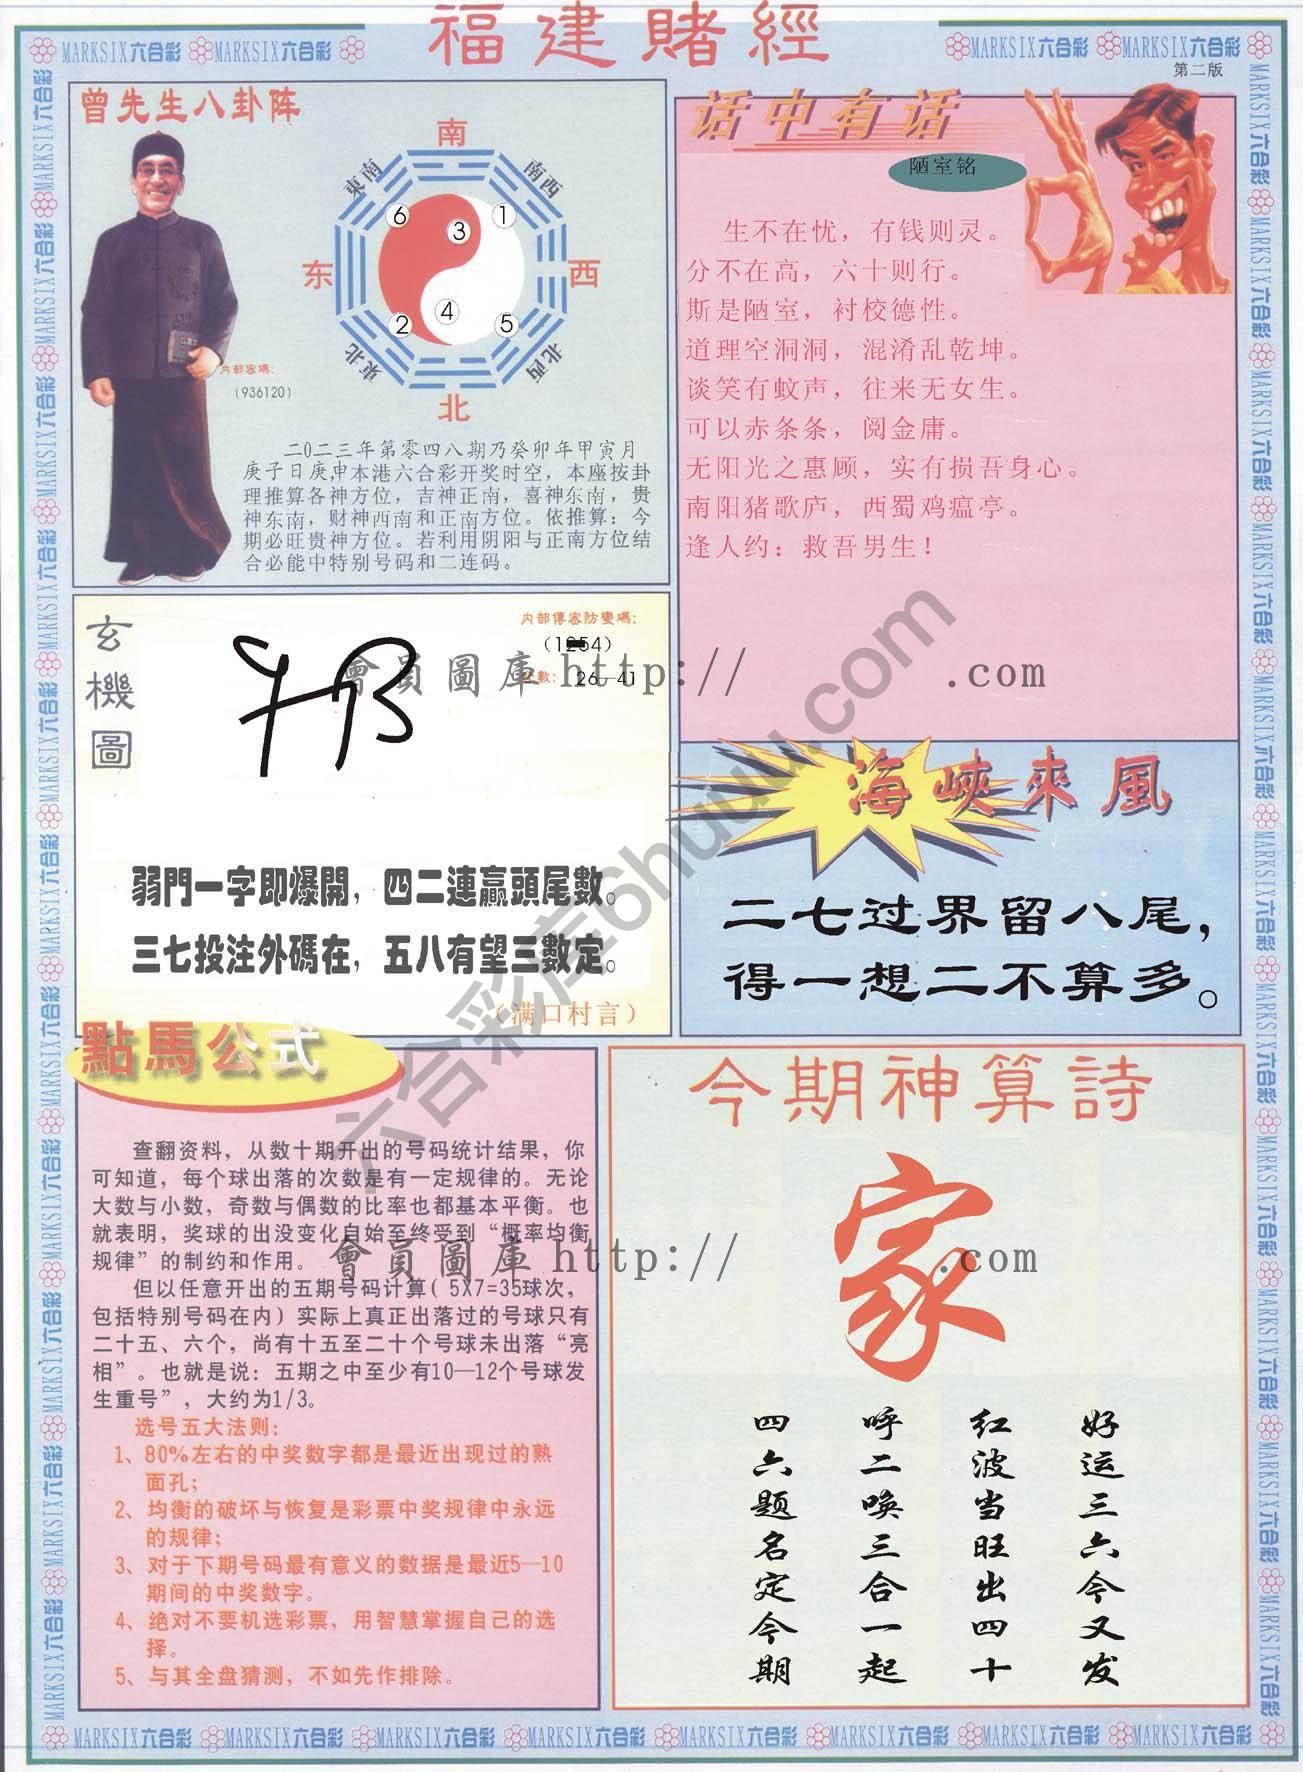 福建賭經
MARKSIX六合彩 MARKSIX六合彩
MARKSIX六合彩 MARKSIX六合彩
第二版
曾先生八卦阵
南
東南
南西
6
3
1
东
西
4
2
5
東北
北西
北
内部密碼：
(936120)
二0二三年第零四八期乃癸卯年甲寅月
庚子日庚,申本港六合彩开奖时空，本座按卦
理推算各神方位，吉神正南，喜神东南，贵
神东南，财神西南和正南方位。依推算：今
期必旺贵神方位。若利用阴阳与正南方位结
合必能中特别号码和二连码。
话中有话
陋室铭
生不在忧，有钱则灵。
分不在高，六十则行。
斯是陋室，衬校德性。
道理空洞洞，混淆乱乾坤。
谈笑有蚊声，往来无女生。
可以赤条条，阅金庸。
无阳光之惠顾，实有损吾身心。
南阳猪歌庐，西蜀鸡瘟亭。
逢人约：救吾男生！
玄機圖
内部傳密防變碼：
數：26—41
會員圖庫 http:// .com
弱門一字即爆開，四二連贏頭尾數。
三七投注外碼在，五八有望三數定。
（满口村言）
海峽來風
二七过界留八尾，
得一想二不算多。
六合彩库6huuu.com
點馬公式
查翻资料，从数十期开出的号码统计结果，你
可知道，每个球出落的次数是有一定规律的。无论
大数与小数，奇数与偶数的比率也都基本平衡。也
就表明，奖球的出没变化自始至终受到“概率均衡
规律”的制约和作用。
但以任意开出的五期号码计算( 5X7=35球次，
包括特别号码在内）实际上真正出落过的号球只有
二十五、六个，尚有十五至二十个号球未出落“亮
相”。也就是说：五期之中至少有10—12个号球发
生重号”，大约为1/3。
选号五大法则：
1、80%左右的中奖数字都是最近出现过的熟
面孔；
2、均衡的破坏与恢复是彩票中奖规律中永远
的规律；
3、对于下期号码最有意义的数据是最近5—10
期间的中奖数字。
4、绝对不要机选彩票，用智慧掌握自己的选
择。
5、与其全盘猜测，不如先作排除。
今期神算詩
家
會員圖庫 http:// .com
好运三六今又发
红波当旺出四十
呼二唤三合一起
四六题名定今期
MARKSIX六合彩 MARKSIX六合彩 MARKSIX六合彩 MARKSIX六合彩 MARKSIX六合彩 MARKSIX六合彩 MARKSIX六合彩 MARKSIX六合彩